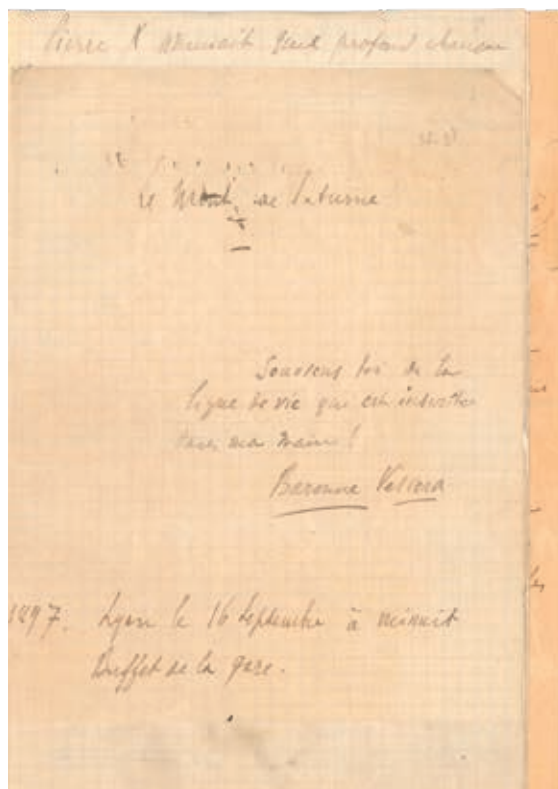 Pierre X profond
Le Mont de Saturne
Souviens toi de la
ligne de vie qui est inscrite
dans ma main !
Baronne Vetsera
1897. Lyon le 16 Septembre à minuit
Buffet de la gare.